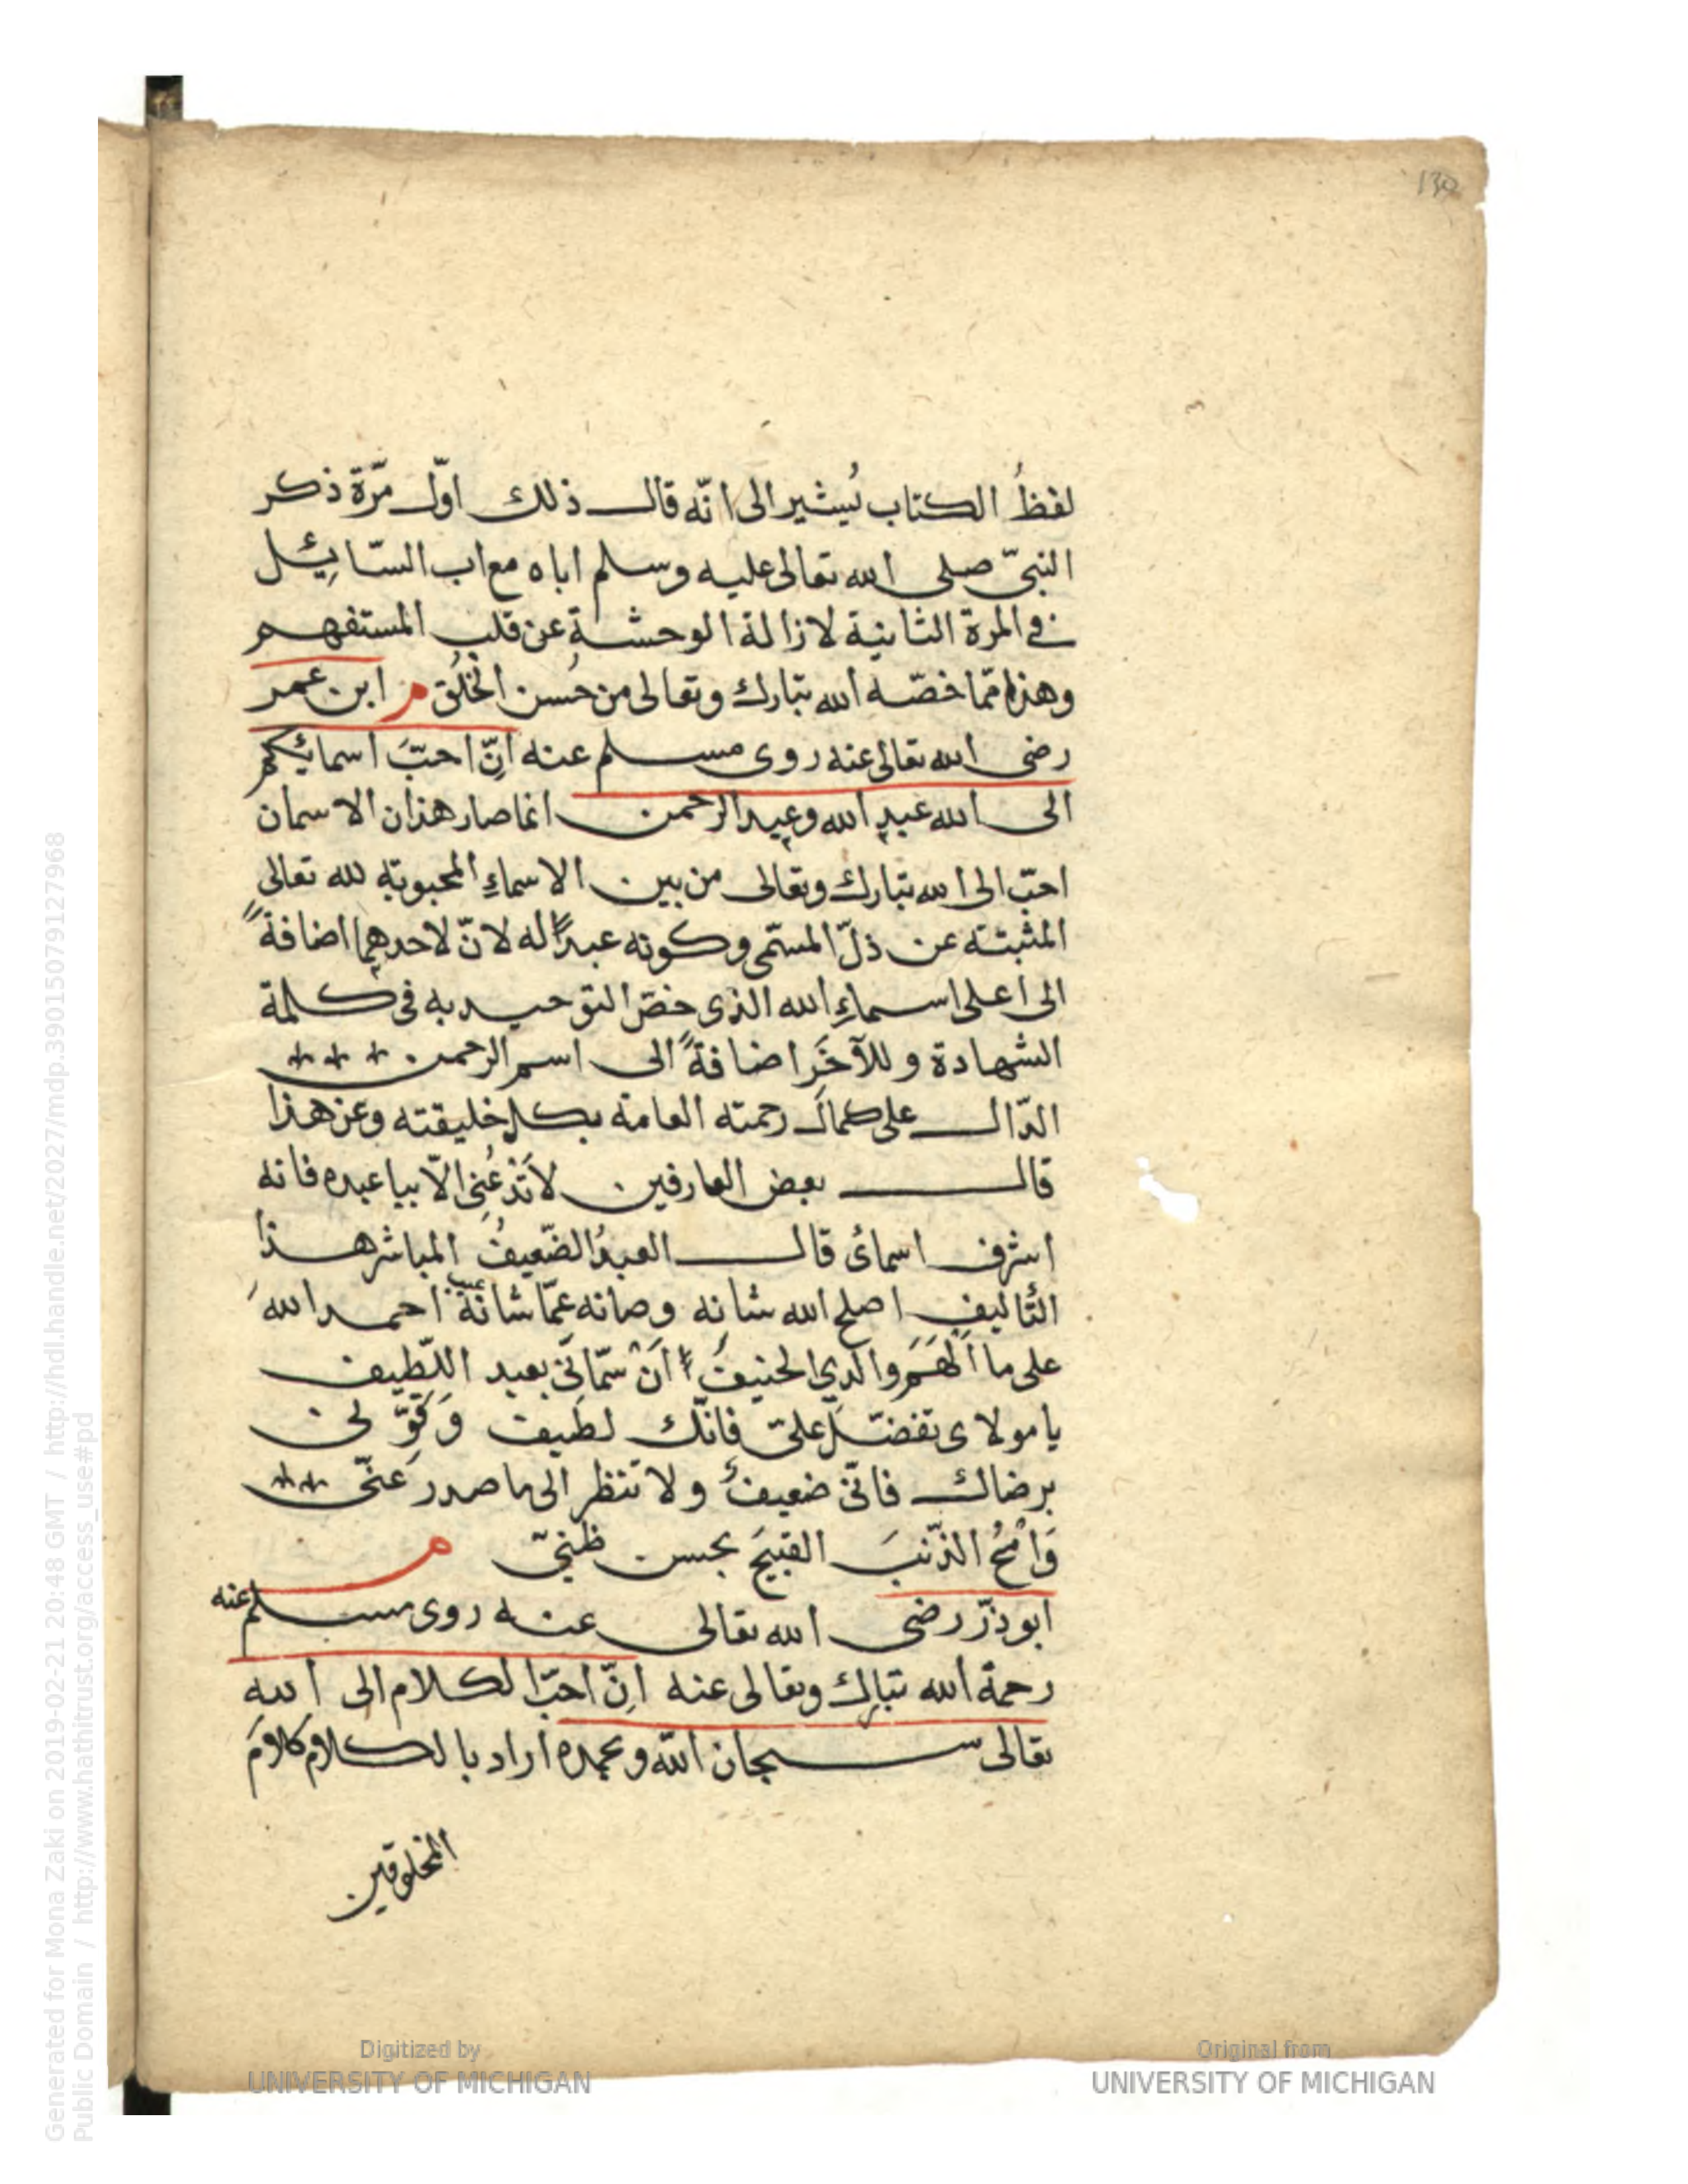 130
لفظُ الكتاب يُشير الى انّه قال ذلك اوّل مرّة ذكر
النبيّ صلى الله تعالى عليه وسلم اباه مع اب السّائِل
فى المرة الثانية لازالة الوحشة عن قلب المستفهم
وهذا ممّا خصّه الله تبارك وتعالى من حُسن الخُلُق م ابن عمر
رضى الله تعالى عنه روى مسلم عنه اِنّ احبَّ اسمائِكم
الى الله عبد الله وعبد الرحمن انما صار هذان الاسمان
احبّ الى الله تبارك وتعالى من بين الاسماءِ المحبوبة لله تعالى
المثبتة عن ذلّ المسمّى وكونه عبداً له لانّ لاحدهما اضافةً
الى اعلى اسماءِ الله الذى خصّ التوحيد به فى كلمة
الشهادة وللآخَر اضافةً الى اسم الرحمن
الدّال على كمال رحمته العامة بكل خليقته وعن هذا
قال بعض العارفين لاتَدْعُنى الّا بيا عبده فانه
اشرف اسمائى قال العبدُ الضّعيفُ المباشر هذا
التّاليف اصلح الله شانه وصانه عمّا شانَهُ احمد اللهَ
على ما اَلْهَمَ والدي الحنيفَ اَنْ سمّانى بعبد اللّطيف
يا مولاى تفضّل علىّ فانّك لطيف وَقَوِّ لى
برضاك فانّى ضعيفٌ ولا تنظر الى ما صدر عنّى
وَامْحُ الذّنبَ القبيحَ بحسن ظنىّ م
ابو ذرّ رضى الله تعالى عنه روى مسلم عنه
رحمة الله تبارك وتعالى عنه اِنّ احبّ الكلام الى الله
تعالى سبحان الله وبحمده اراد بالكلام كلامَ
المخلوقين
Generated for Mona Zaki on 2019-02-21 20:48 GMT / http://hdl.handle.net/2027/mdp.39015079127968
Public Domain / http://www.hathitrust.org/access_use#pd
Digitized by
UNIVERSITY OF MICHIGAN
Original from
UNIVERSITY OF MICHIGAN